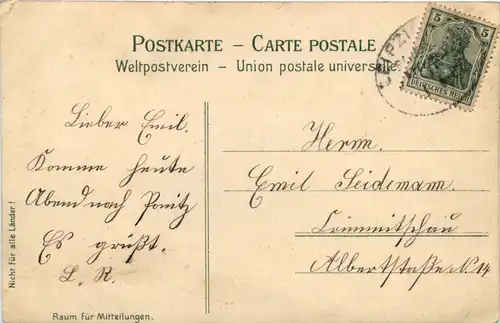 POSTKARTE – CARTE POSTALE
Weltpostverein – Union postale universelle
5 5
DEUTSCHES REICH
LEIPZI
Lieber Emil.
Komme heute
Abend nach Ponitz
Es grüßt.
L. R.
Herrn.
Emil Seidemann.
Crimmitschau
Albertstaße N. 14
Nicht für alle Länder!
Raum für Mitteilungen.